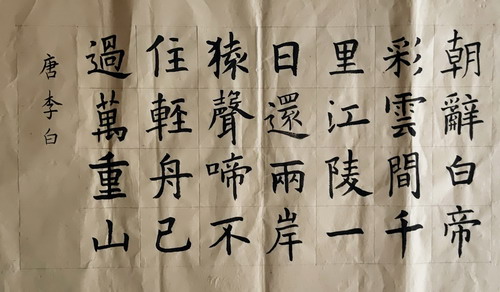 朝辭白帝
彩雲間千
里江陵一
日還兩岸
猿聲啼不
住輕舟已
過萬重山
唐李白